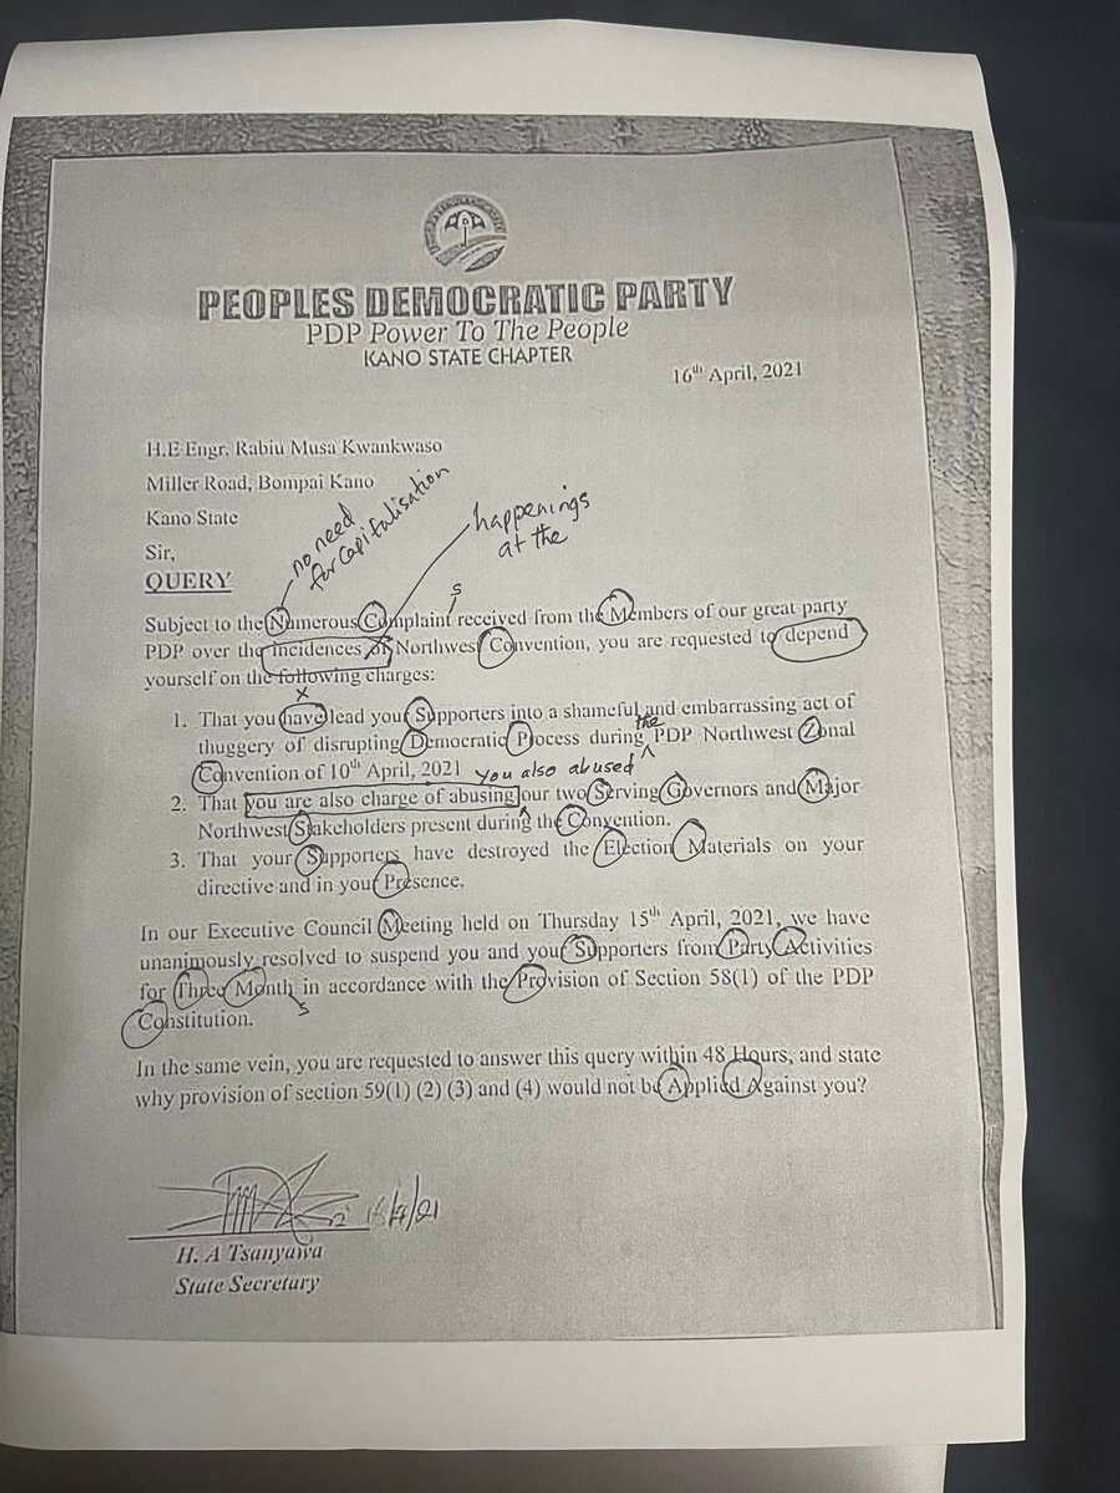 PEOPLES DEMOCRATIC PARTY
PDP Power To The People
KANO STATE CHAPTER
16th April, 2021
H.E Engr. Rabiu Musa Kwankwaso
Miller Road, Bompai Kano
Kano State
no need
for capitalisation
happenings
at the
Sir,
QUERY
s
Subject to the Numerous Complaint received from the Members of our great party
PDP over the incidences of Northwest Convention, you are requested to depend
yourself on the following charges:
x
1. That you have lead your Supporters into a shameful and embarrassing act of
the
thuggery of disrupting Democratic Process during PDP Northwest Zonal
Convention of 10th April, 2021 you also abused
2. That you are also charge of abusing our two Serving Governors and Major
Northwest Stakeholders present during the Convention.
3. That your Supporters have destroyed the Election Materials on your
directive and in your Presence.
In our Executive Council Meeting held on Thursday 15th April, 2021, we have
unanimously resolved to suspend you and your Supporters from Party Activities
for Three Month in accordance with the Provision of Section 58(1) of the PDP
s
Constitution.
In the same vein, you are requested to answer this query within 48 Hours, and state
why provision of section 59(1) (2) (3) and (4) would not be Applied Against you?
16/4/21
H. A Tsanyawa
State Secretary